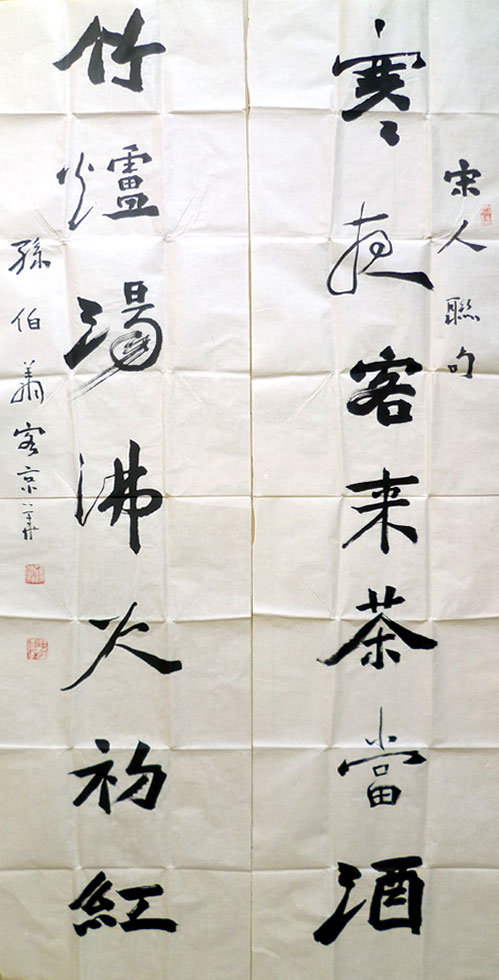 宋人聯句
寒夜客来茶當酒
竹爐湯沸火初紅
孫伯翔客京華